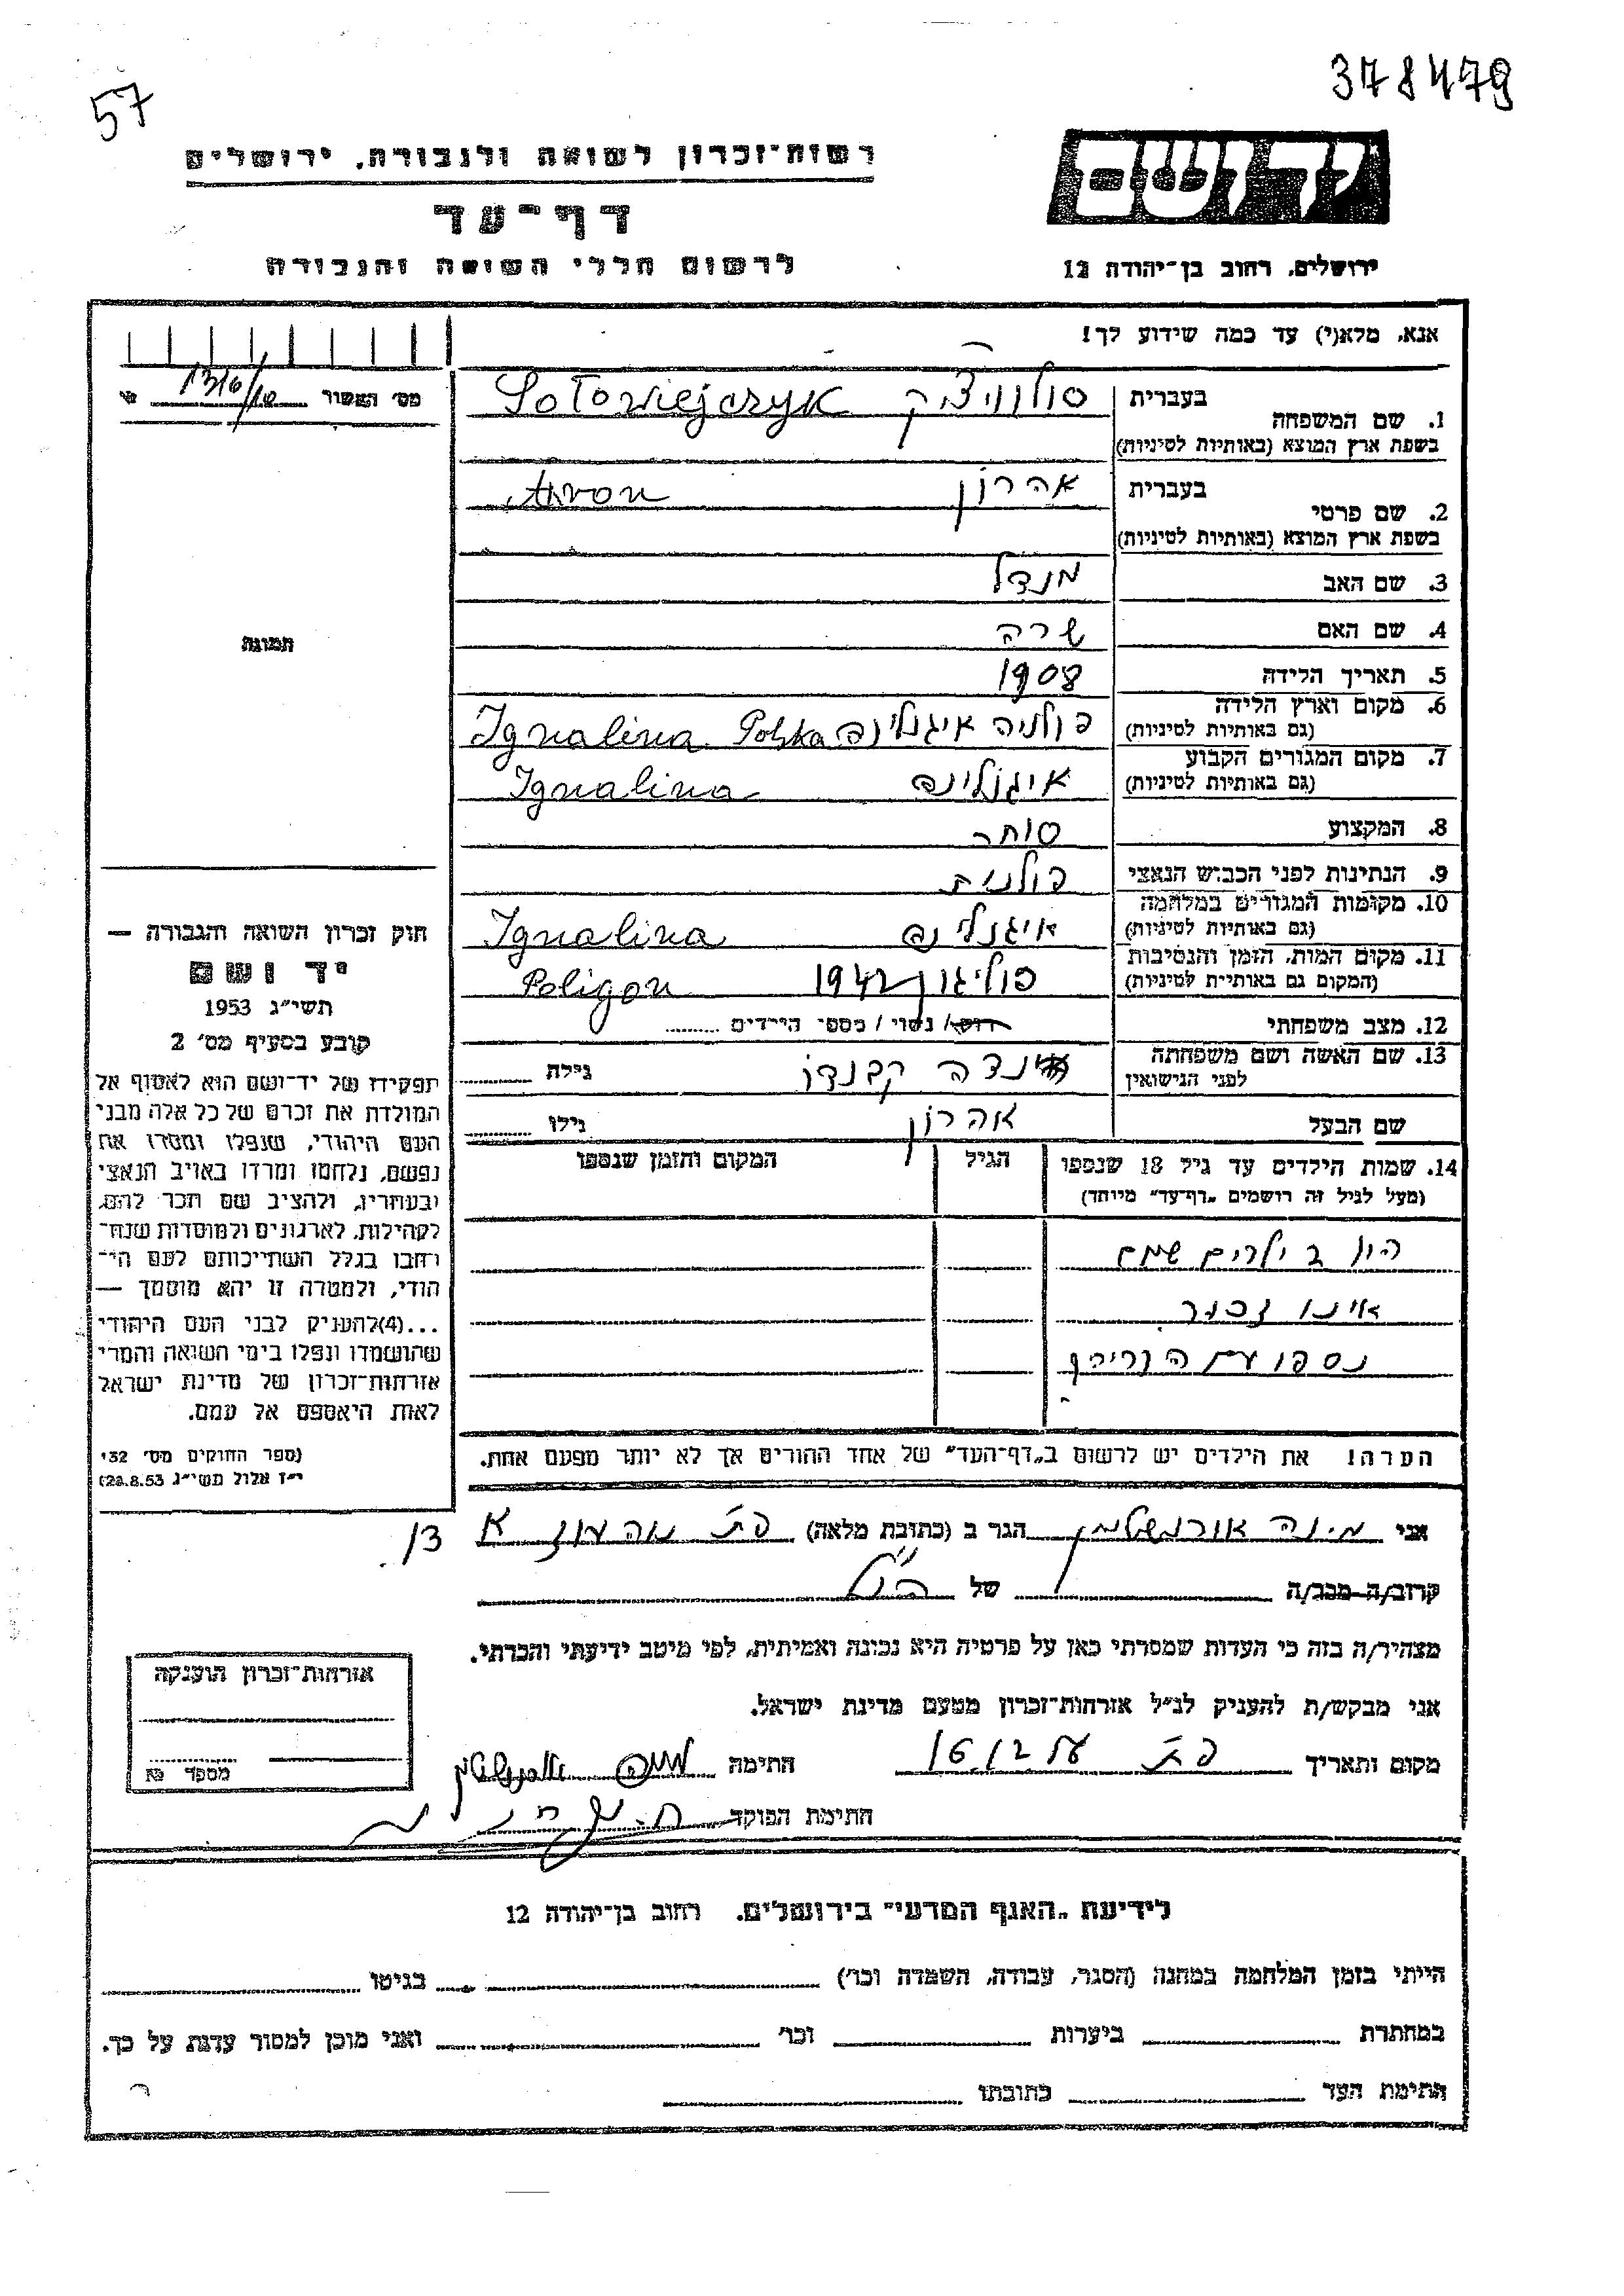 378479
57
רשות-זכרון לשואה ולגבורה, ירושלים
דף-עד
לרשום חללי השואה והגבורה
יד ושם
ירושלים, רחוב בן-יהודה 12
אנא, מלא(י) עד כמה שידוע לך!
מס' האשור
1. שם המשפחה בעברית סולוויציק Sołowiejczyk
בשפת ארץ המוצא (באותיות לטיניות)
2. שם פרטי בעברית אהרון Aron
בשפת ארץ המוצא (באותיות לטיניות)
3. שם האב מנדל
4. שם האם שרה
5. תאריך הלידה 1908
6. מקום וארץ הלידה פולניה איגנלינה Ignalina Polska
(גם באותיות לטיניות)
7. מקום המגורים הקבוע איגנלינה Ignalina
(גם באותיות לטיניות)
8. המקצוע סוחר
9. הנתינות לפני הכבוש הנאצי פולנית
10. מקומות המגורים במלחמה איגנלינה Ignalina
(גם באותיות לטיניות)
11. מקום המות, הזמן והנסיבות פוליגון 1942 Poligon
(המקום גם באותיות לטיניות)
12. מצב משפחתי רווק/ נשוי / מספר הילדים
13. שם האשה ושם משפחתה לפני הנישואין גילה
שם הבעל אהרון גילו
14. שמות הילדים עד גיל 18 שנספו הגיל המקום והזמן שנספו
(מעל לגיל זה רושמים "דף-עד" מיוחד)
היו 2 ילדים שמם
אינו זכור
נספו עם הוריהם
הערה! את הילדים יש לרשום ב"דף-העד" של אחד ההורים אך לא יותר מפעם אחת.
תמונה
חוק זכרון השואה והגבורה —
יד ושם
תשי"ג 1953
קובע בסעיף מס' 2
תפקידו של יד-ושם הוא לאסוף אל
המולדת את זכרם של כל אלה מבני
העם היהודי, שנפלו ומסרו את
נפשם, נלחמו ומרדו באויב הנאצי
ובעוזריו, ולהציב שם וזכר להם,
לקהילות, לארגונים ולמוסדות שנח-
רבו בגלל השתייכותם לעם הי-
הודי, ולמטרה זו יהא מוסמך —
...(4) להעניק לבני העם היהודי
שהושמדו ונפלו בימי השואה והמרי
אזרחות-זכרון של מדינת ישראל
לאות היאספם אל עמם.
(ספר החוקים מס' 132
י"ז אלול תשי"ג 28.8.53)
אני מינה הגר ב (כתובת מלאה) פת
קרוב/ה מכר/ה של הנ"ל
מצהיר/ה בזה כי העדות שמסרתי כאן על פרטיה היא נכונה ואמיתית, לפי מיטב ידיעתי והכרתי.
אני מבקש/ת להעניק לנ"ל אזרחות-זכרון מטעם מדינת ישראל.
מקום ותאריך פת החתימה
חתימת הפוקד
אזרחות-זכרון הוענקה
מספר
לידיעת "האגף המדעי" בירושלים, רחוב בן-יהודה 12
הייתי בזמן המלחמה במחנה (הסגר, עבודה, השמדה וכו') בגיטו
במחתרת ביערות וכו' ואני מוכן למסור עדות על כך.
חתימת העד כתובתו